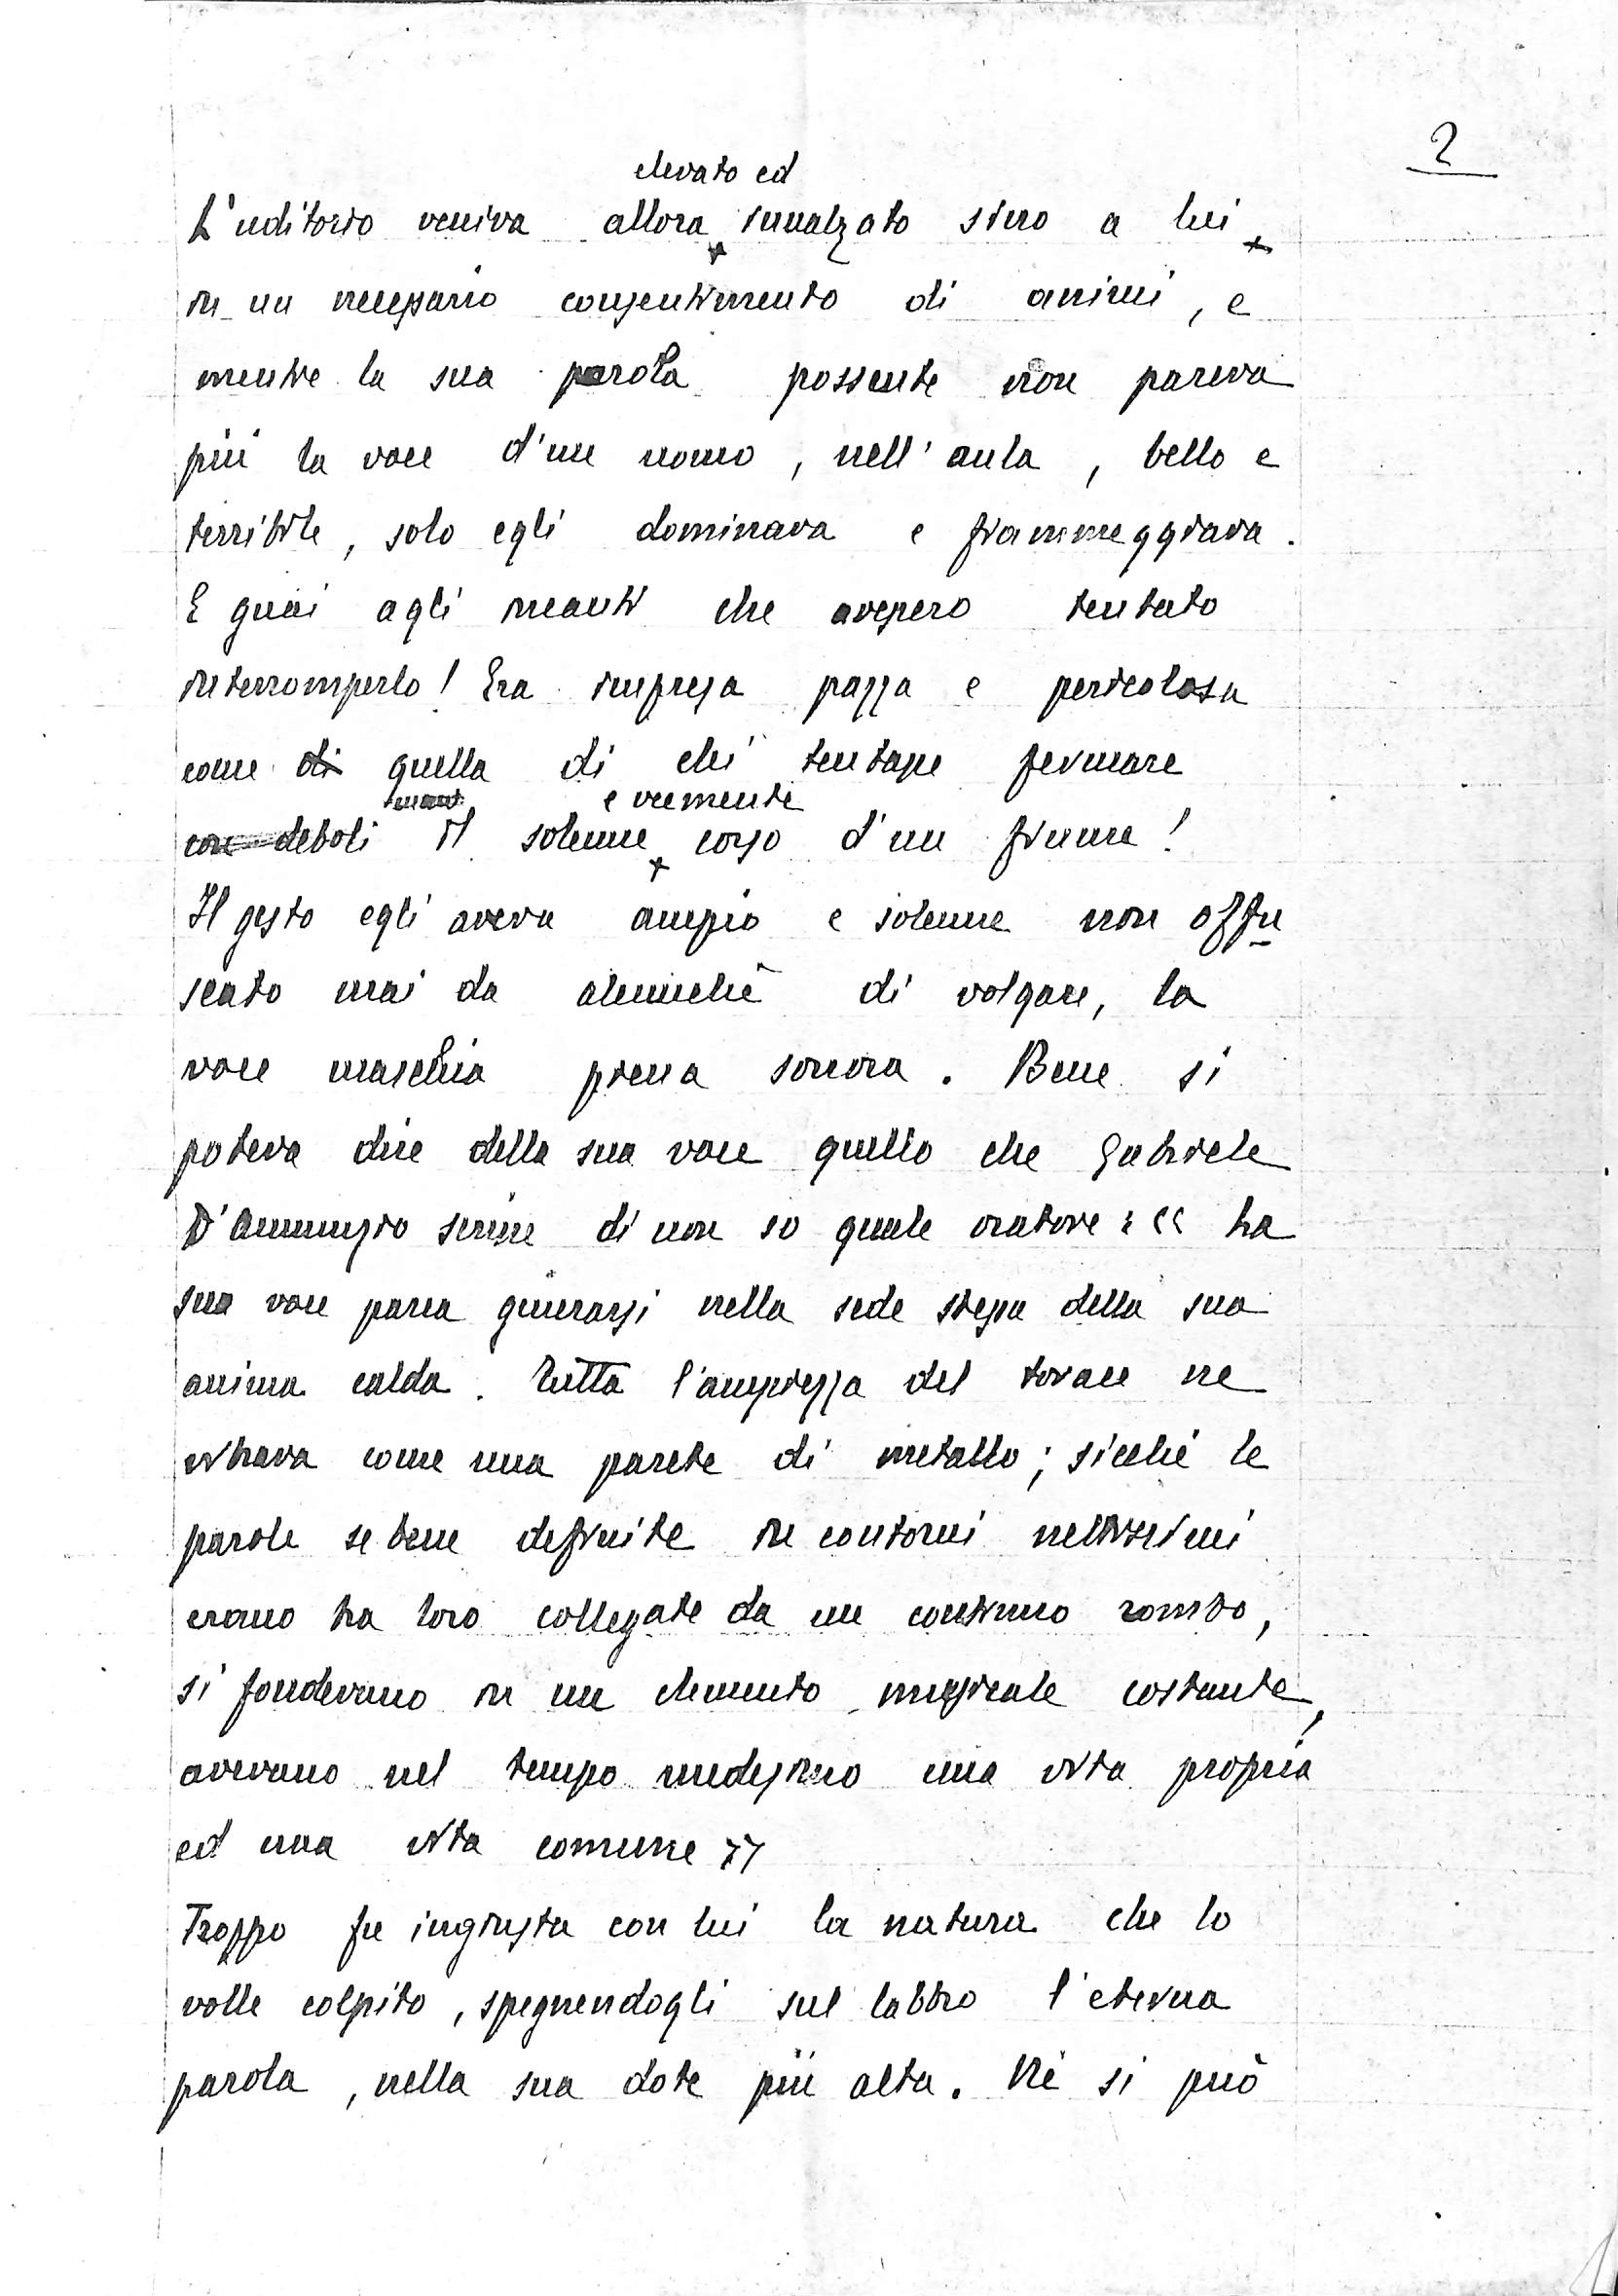 2
elevato ed
L'uditorio veniva allora innalzato sino a lui
in un necessario consentimento di animi, e
mentre la sua parola possente non pareva
più la voce d'un uomo, nell'aula, bello e
terribile, solo egli dominava e fiammeggiava.
E guai agli incauti che avessero tentato
interromperlo! Era impresa pazza e pericolosa
come di quella di chi tentasse fermare
e veemente
con deboli il solenne corso d'un fiume!
Il gesto egli aveva ampio e solenne non offu
scato mai da alcunchè di volgare, la
voce maschia piena sonora. Bene si
poteva dire della sua voce quello che Gabriele
D'Annunzio scrisse di non so quale oratore: « La
sua voce parea generarsi nella sede stessa della sua
anima calda. Tutta l'ampiezza del torace ne
vibrava come una parete di metallo; sicchè le
parole se bene definite in contorni nettissimi
erano tra loro collegate da un continuo rombo,
si fondevano in un elemento musicale costante,
avevano nel tempo medesimo una vita propria
ed una vita comune »
Troppo fu ingiusta con lui la natura che lo
volle colpito, spegnendogli sul labbro l'eterna
parola, nella sua dote più alta. Nè si può